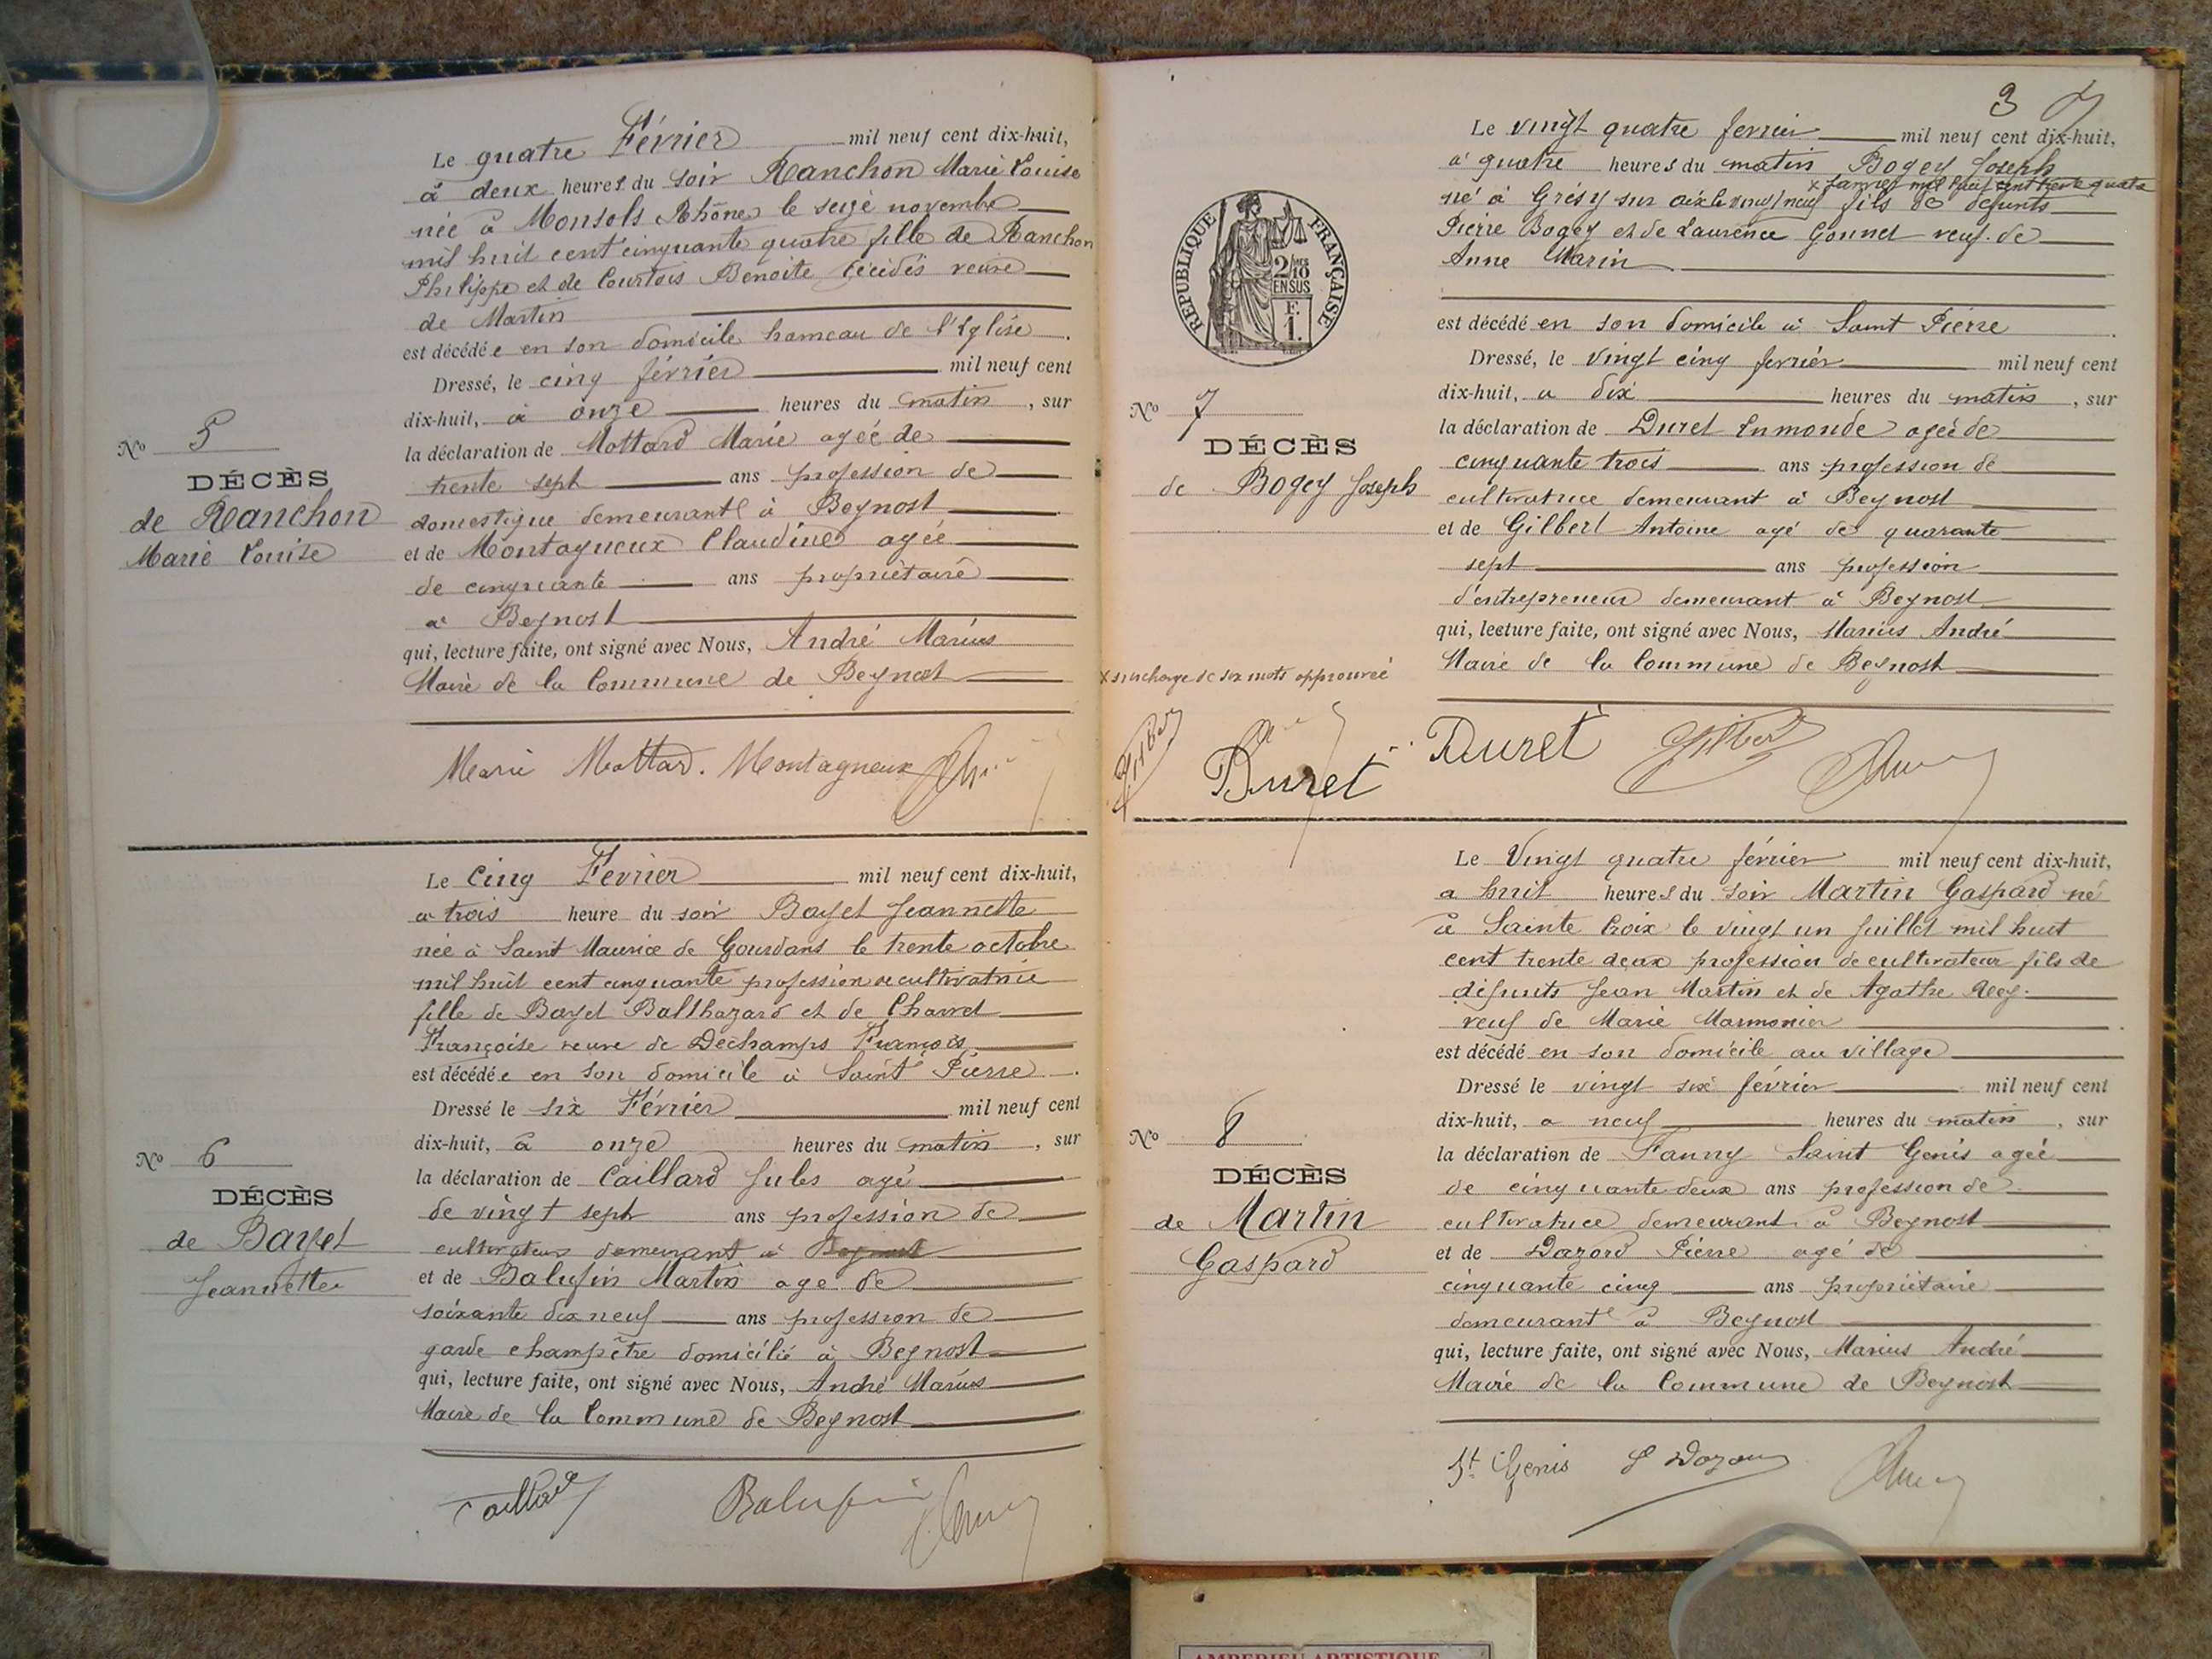 Le quatre Février mil neuf cent dix-huit,
à deux heures du soir Ranchon Marie Louise
née à Monsols Rhône le seize novembre
mil huit cent cinquante quatre fille de Ranchon
Philippe et de Courtois Benoite décédés veuve
de Martin
est décédée en son domicile hameau de l'Eglise
Dressé, le cinq février mil neuf cent
dix-huit, à onze heures du matin, sur
la déclaration de Mottard Marie agée de
trente sept ans profession de
domestique demeurant à Beynost
et de Montagneux Claudine agée
de cinquante ans propriétaire
à Beynost
qui, lecture faite, ont signé avec Nous, André Marius
Maire de la Commune de Beynost
No 5
DÉCÈS
de Ranchon
Marie Louise
Marie Mottard. Montagneux
Le cinq Fevrier mil neuf cent dix-huit,
a trois heure du soir Bayet Jeannette
née à Saint Maurice de Gourdans le trente octobre
mil huit cent cinquante profession de cultivatrice
fille de Bayet Balthazard et de Charvet
Françoise veuve de Dechamps François
est décédée en son domicile à Saint Pierre
Dressé le six Février mil neuf cent
dix-huit, à onze heures du matin, sur
la déclaration de Caillard Jules agé
de vingt sept ans profession de
cultivateur demeurant à Beynost
et de Balufin Martin age de
soixante dix neuf ans profession de
garde champêtre domicilié à Beynost
qui, lecture faite, ont signé avec Nous, André Marius
Maire de la Commune de Beynost
No 6
DÉCÈS
de Bayet
Jeannette
Caillard Balufin
3 7
Le vingt quatre fevrier mil neuf cent dix-huit,
à quatre heures du matin Bogey Joseph
x janvier mil huit cent trente quatre
né à Grésy sur aix le vingt neuf fils de défunts
Pierre Bogey et de Laurence Gonnet veuf de
Anne Marin
est décédé en son domicile à Saint Pierre
Dressé, le vingt cinq fevrier mil neuf cent
dix-huit, a dix heures du matin, sur
la déclaration de Duret Enmonde agée de
cinquante trois ans profession de
cultivatrice demeurant à Beynost
et de Gilbert Antoine agé de quarante
sept ans profession
d'entrepreneur demeurant à Beynost
qui, lecture faite, ont signé avec Nous, Marius André
Maire de la Commune de Beynost
RÉPUBLIQUE FRANÇAISE
2/10
EN SUS
F.
1.
No 7
DÉCÈS
de Bogey Joseph
x surcharge de six mots approuvée
Gilbert Duret Duret Gilbert
Le Vingt quatre février mil neuf cent dix-huit,
a huit heures du soir Martin Gaspard né
à Sainte Croix le vingt un juillet mil huit
cent trente deux profession de cultivateur fils de
défunts Jean Martin et de Agathe Rey
veuf de Marie Marmonier
est décédé en son domicile au village
Dressé le vingt six février mil neuf cent
dix-huit, a neuf heures du matin, sur
la déclaration de Fanny Saint Genis agée
de cinquante deux ans profession de
cultivatrice demeurant à Beynost
et de Dazord Pierre agé de
cinquante cinq ans propriétaire
demeurant à Beynost
qui, lecture faite, ont signé avec Nous, Marius André
Maire de la Commune de Beynost
No 8
DÉCÈS
de Martin
Gaspard
St Genis P Dazord
AMBERIEU ARTISTIQUE